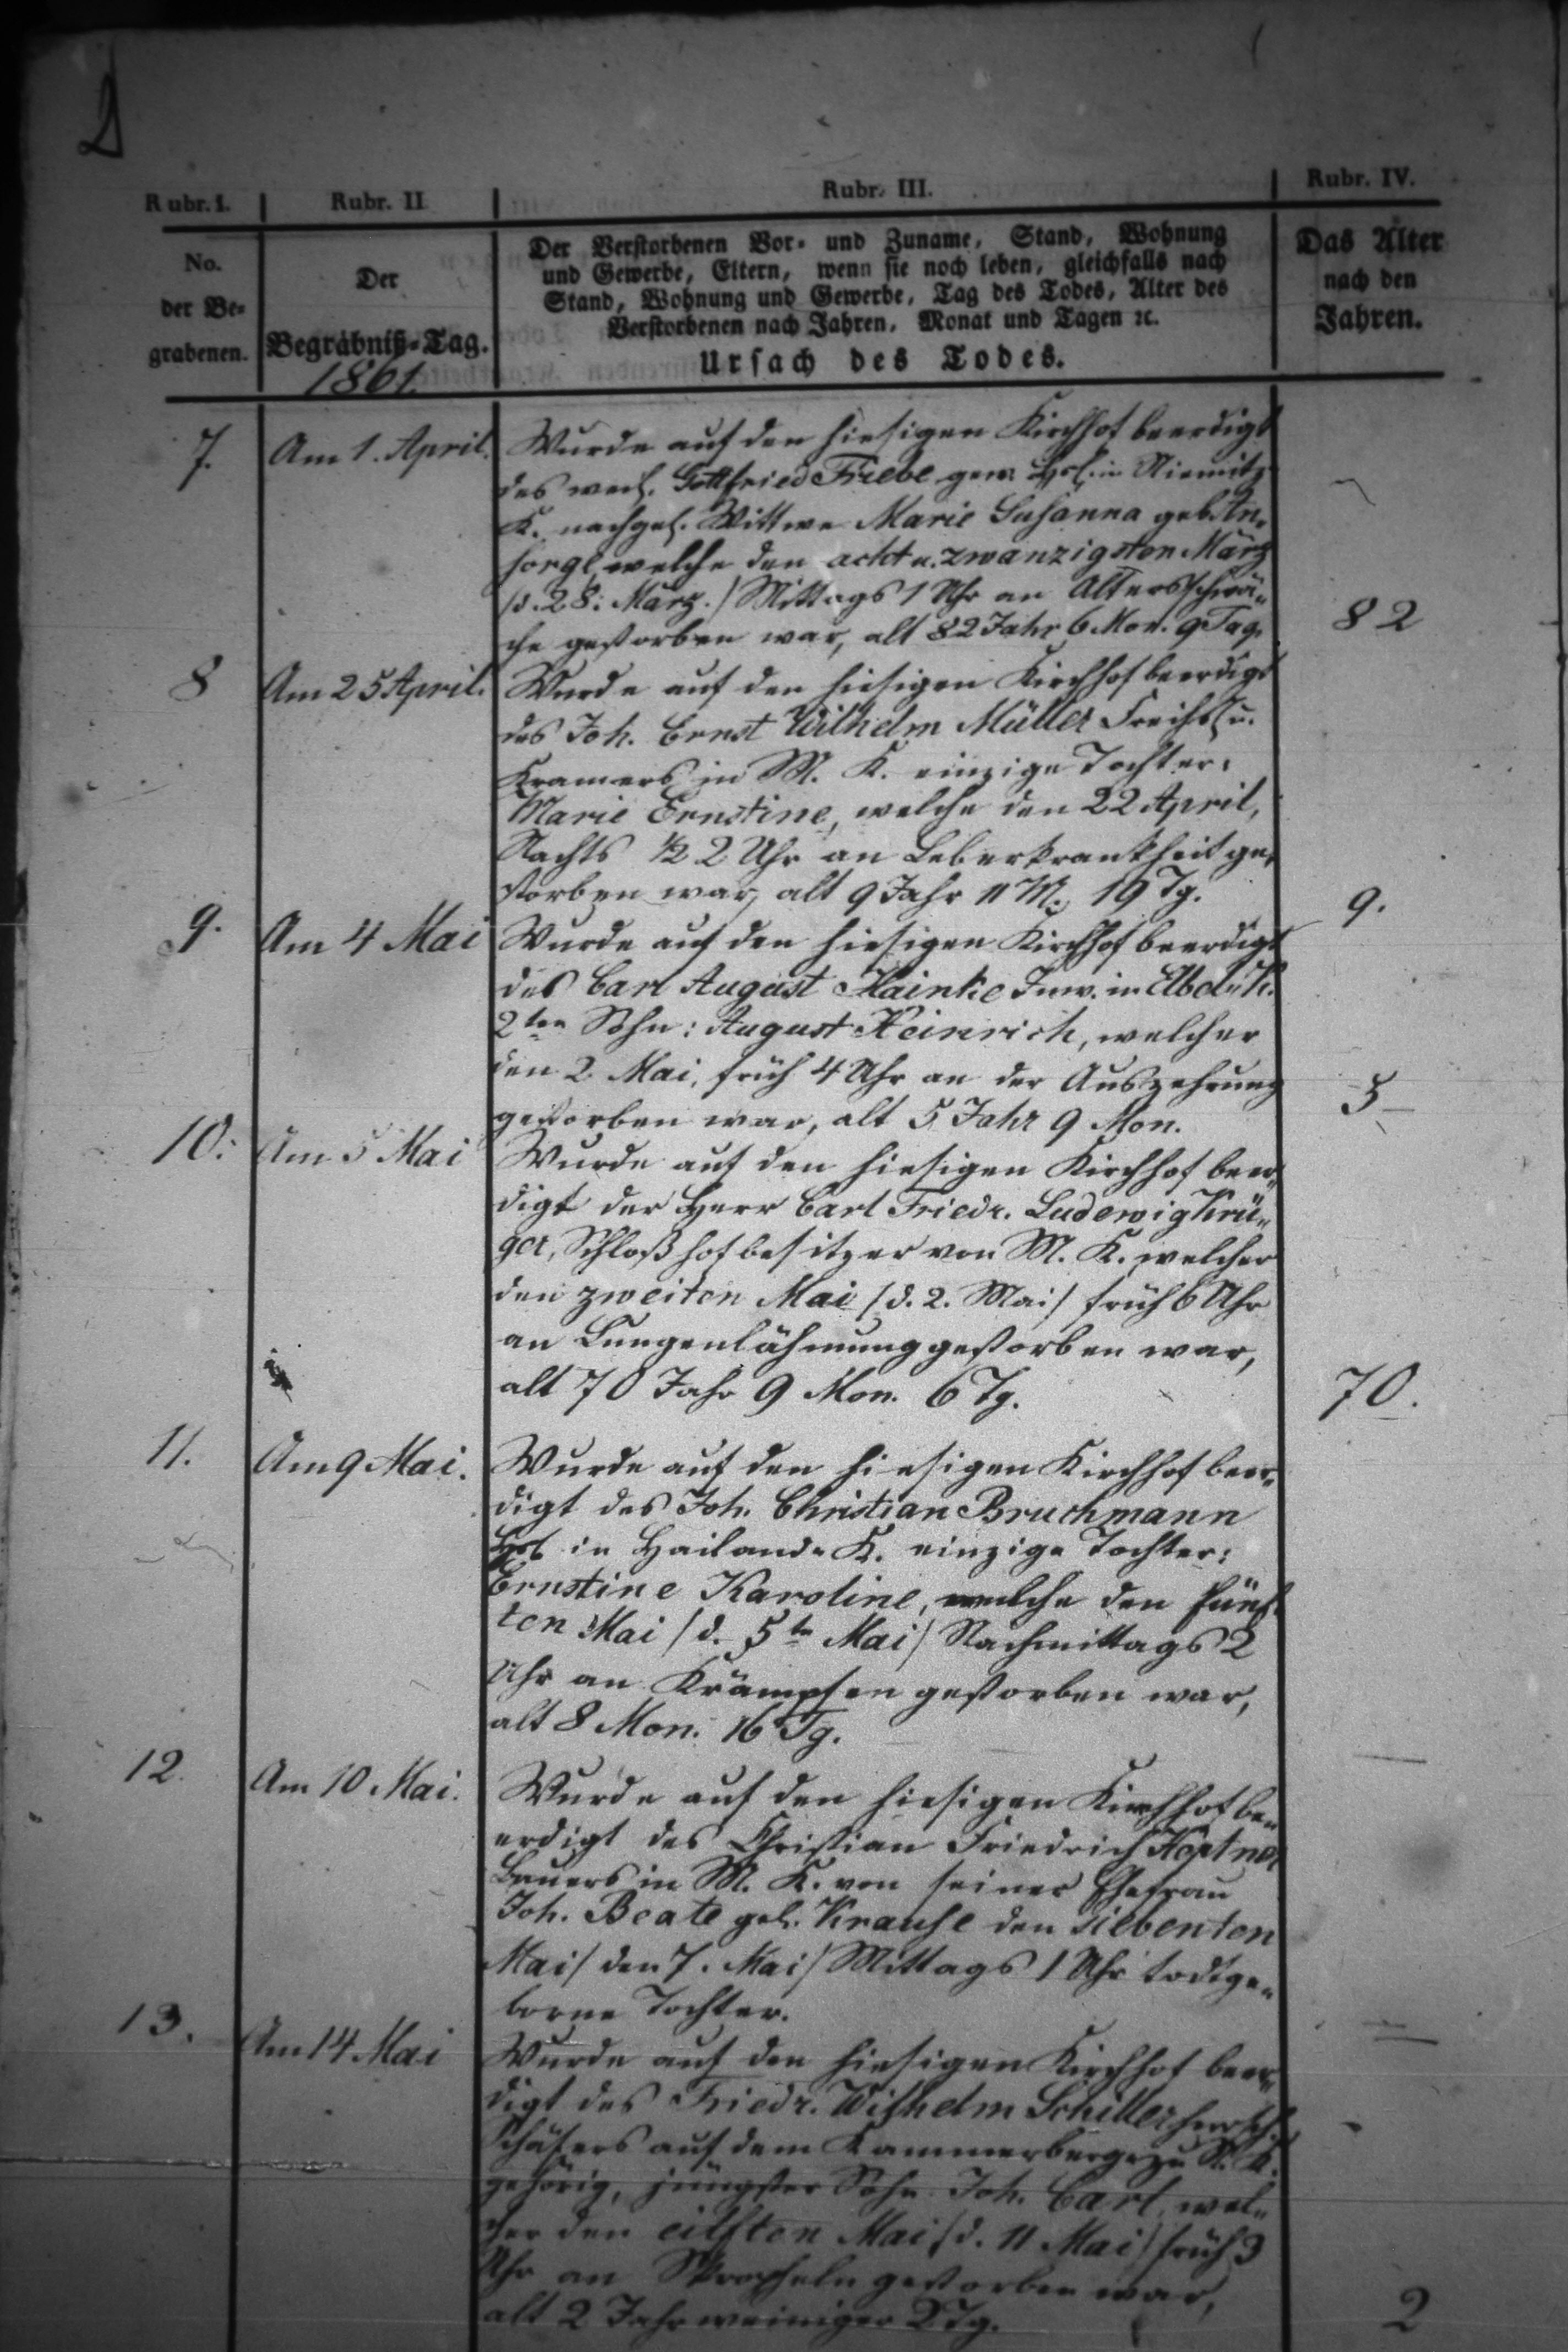 Rubr. I.
Rubr. II
Rubr. III.
Rubr. IV.
No.
der Be-
grabenen.
Der
Begräbniß-Tag.
1861.
Der Verstorbenen Vor- und Zuname, Stand, Wohnung
und Gewerbe, Eltern, wenn sie noch leben, gleichfalls nach
Stand, Wohnung und Gewerbe, Tag des Todes, Alter des
Verstorbenen nach Jahren, Monat und Tagen ꝛc.
Ursach des Todes.
Das Alter
nach den
Jahren.
7.
Am 1. April.
Wurde auf den hiesigen Kirchhof beerdigt
des weil. Gottfried Friebe gew. Hsl. in Niemitz
K. nachgel. Wittwe Marie Susanna geb. An-
sorge, welche den acht u. zwanzigsten März
/d. 28. März./ Mittags 1 Uhr an Altersschwä-
che gestorben war, alt 82 Jahr 6 Mon. 9 Tag.
82
8
Am 25 April.
Wurde auf den hiesigen Kirchhof beerdigt
des Joh. Ernst Wilhelm Müller Freihsl. u.
Kramers in M. K. einzige Tochter:
Marie Ernstine, welche den 22 April,
Nachts ½ 2 Uhr an Leberkrankheit ge-
storben war, alt 9 Jahr 11 M. 19 Tg.
9.
9.
Am 4 Mai
Wurde auf den hiesigen Kirchhof beerdigt
des Carl August Hainke Inw. in Elbel-K.
2ten Sohn: August Heinrich, welcher
den 2. Mai, früh 4 Uhr an der Auszehrung
gestorben war, alt 5 Jahr 9 Mon.
5
10.
Am 5 Mai
Wurde auf den hiesigen Kirchhof beer-
digt der Herr Carl Friedr. Ludewig Krü-
ger, Schloßhofbesitzer von M. K. welcher
den zweiten Mai /d. 2. Mai/ früh 6 Uhr
an Lungenlähmung gestorben war,
alt 70 Jahr 9 Mon. 6 Tg.
70.
11.
Am 9 Mai.
Wurde auf den hiesigen Kirchhof beer-
digt des Joh. Christian Bruchmann
Hsl. in Hailand-K. einzige Tochter:
Ernstine Karoline, welche den fünf-
ten Mai /d. 5ten Mai/ Nachmittags 2
Uhr an Krämpfen gestorben war,
alt 8 Mon. 16 Tg.
12.
Am 10 Mai.
Wurde auf den hiesigen Kirchhof be-
erdigt des Christian Friedrich
Bauers in M. K. von seiner Ehefrau
Joh. Beate geb. Krause den siebenten
Mai /den 7. Mai/ Mittags 1 Uhr todtge-
borne Tochter.
13.
Am 14 Mai
Wurde auf den hiesigen Kirchhof beer-
digt des Friedr. Wilhelm Schiller herrsch.
Schäfers auf dem Kammerberge zu N. K.
gehörig, jüngster Sohn Joh. Carl, wel-
cher den eilften Mai /d. 11 Mai/ früh 3
Uhr an Skropheln gestorben war,
alt 2 Jahr weiniger 2 Tg.
2